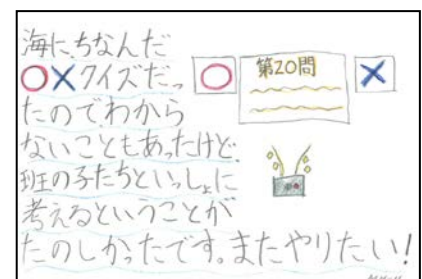 海にちなんだ
○×クイズだっ
たのでわから
ないこともあったけど、
班の子たちといっしょに
考えるということが
たのしかったです。またやりたい!
○
第20問
×